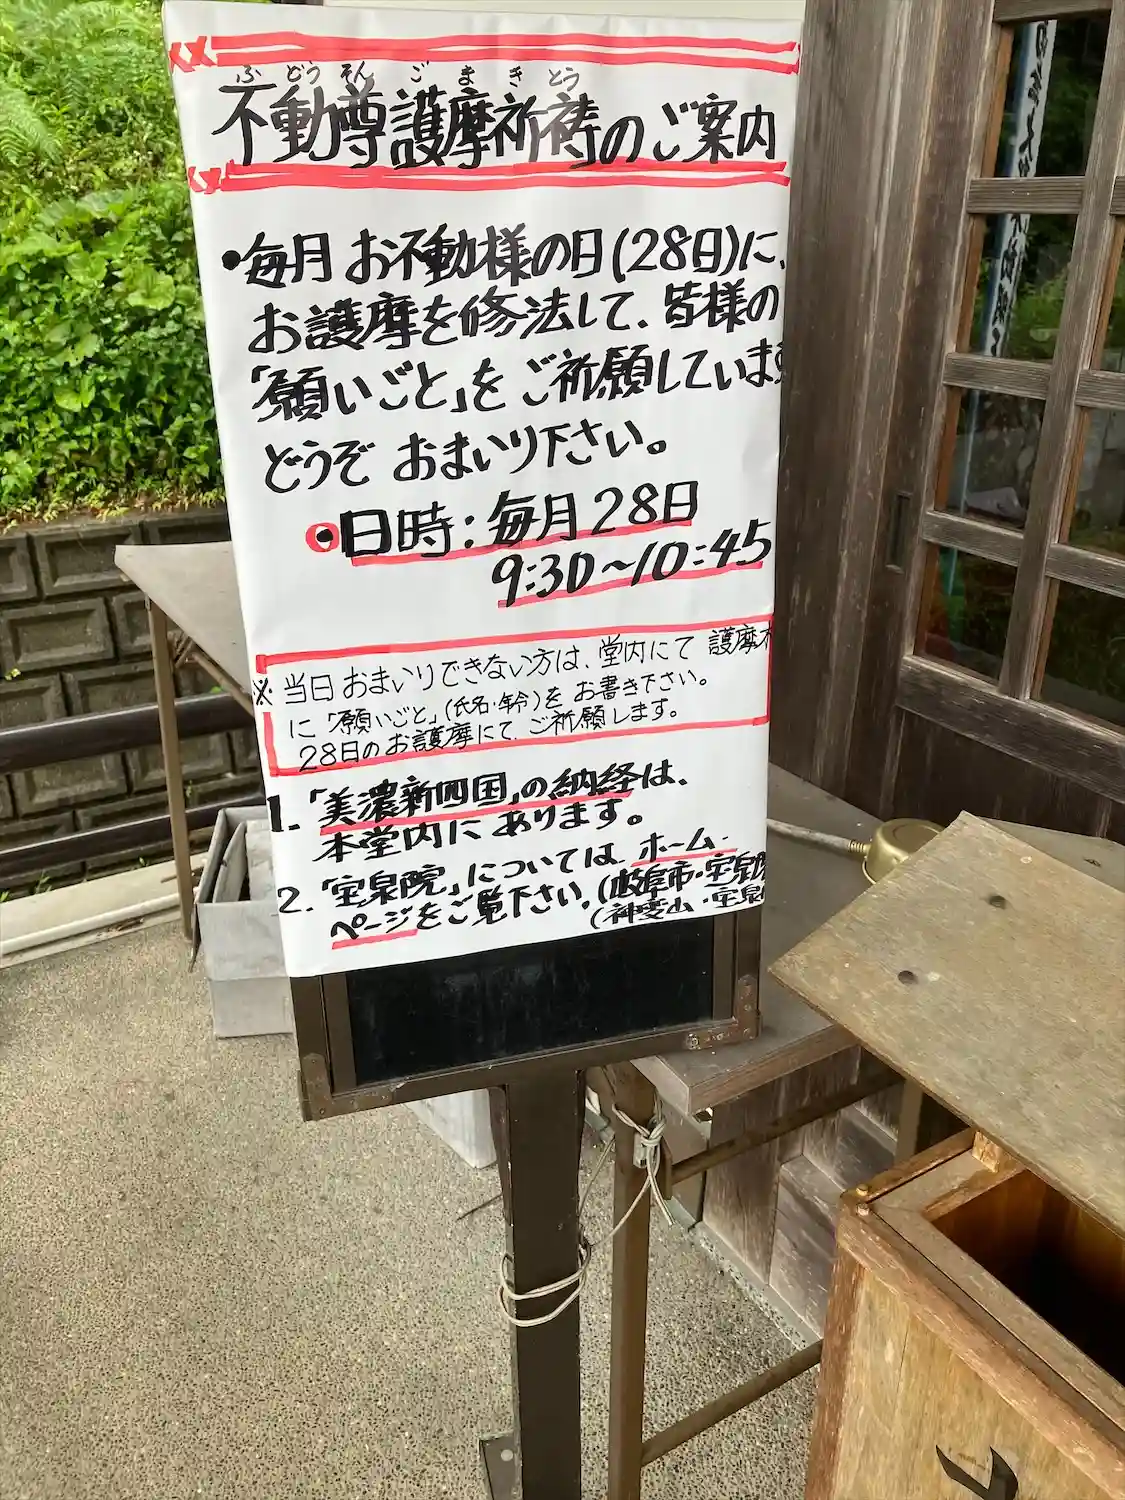 ふどうそんごまきとう
不動尊護摩祈祷のご案内
•毎月 お不動様の日(28日)に、
お護摩を修法して、皆様の
「願いごと」をご祈願しています
どうぞ おまいり下さい。
•日時:毎月28日
9:30~10:45
※当日おまいりできない方は、堂内にて 護摩木
に「願いごと」(氏名・年令)を お書き下さい。
28日のお護摩にて、ご祈願します。
1.「美濃新四国」の納経は、
本堂内に あります。
2.「宝泉院」については ホーム
ページをご覧下さい。(岐阜市・宝泉院
(神変山・宝泉